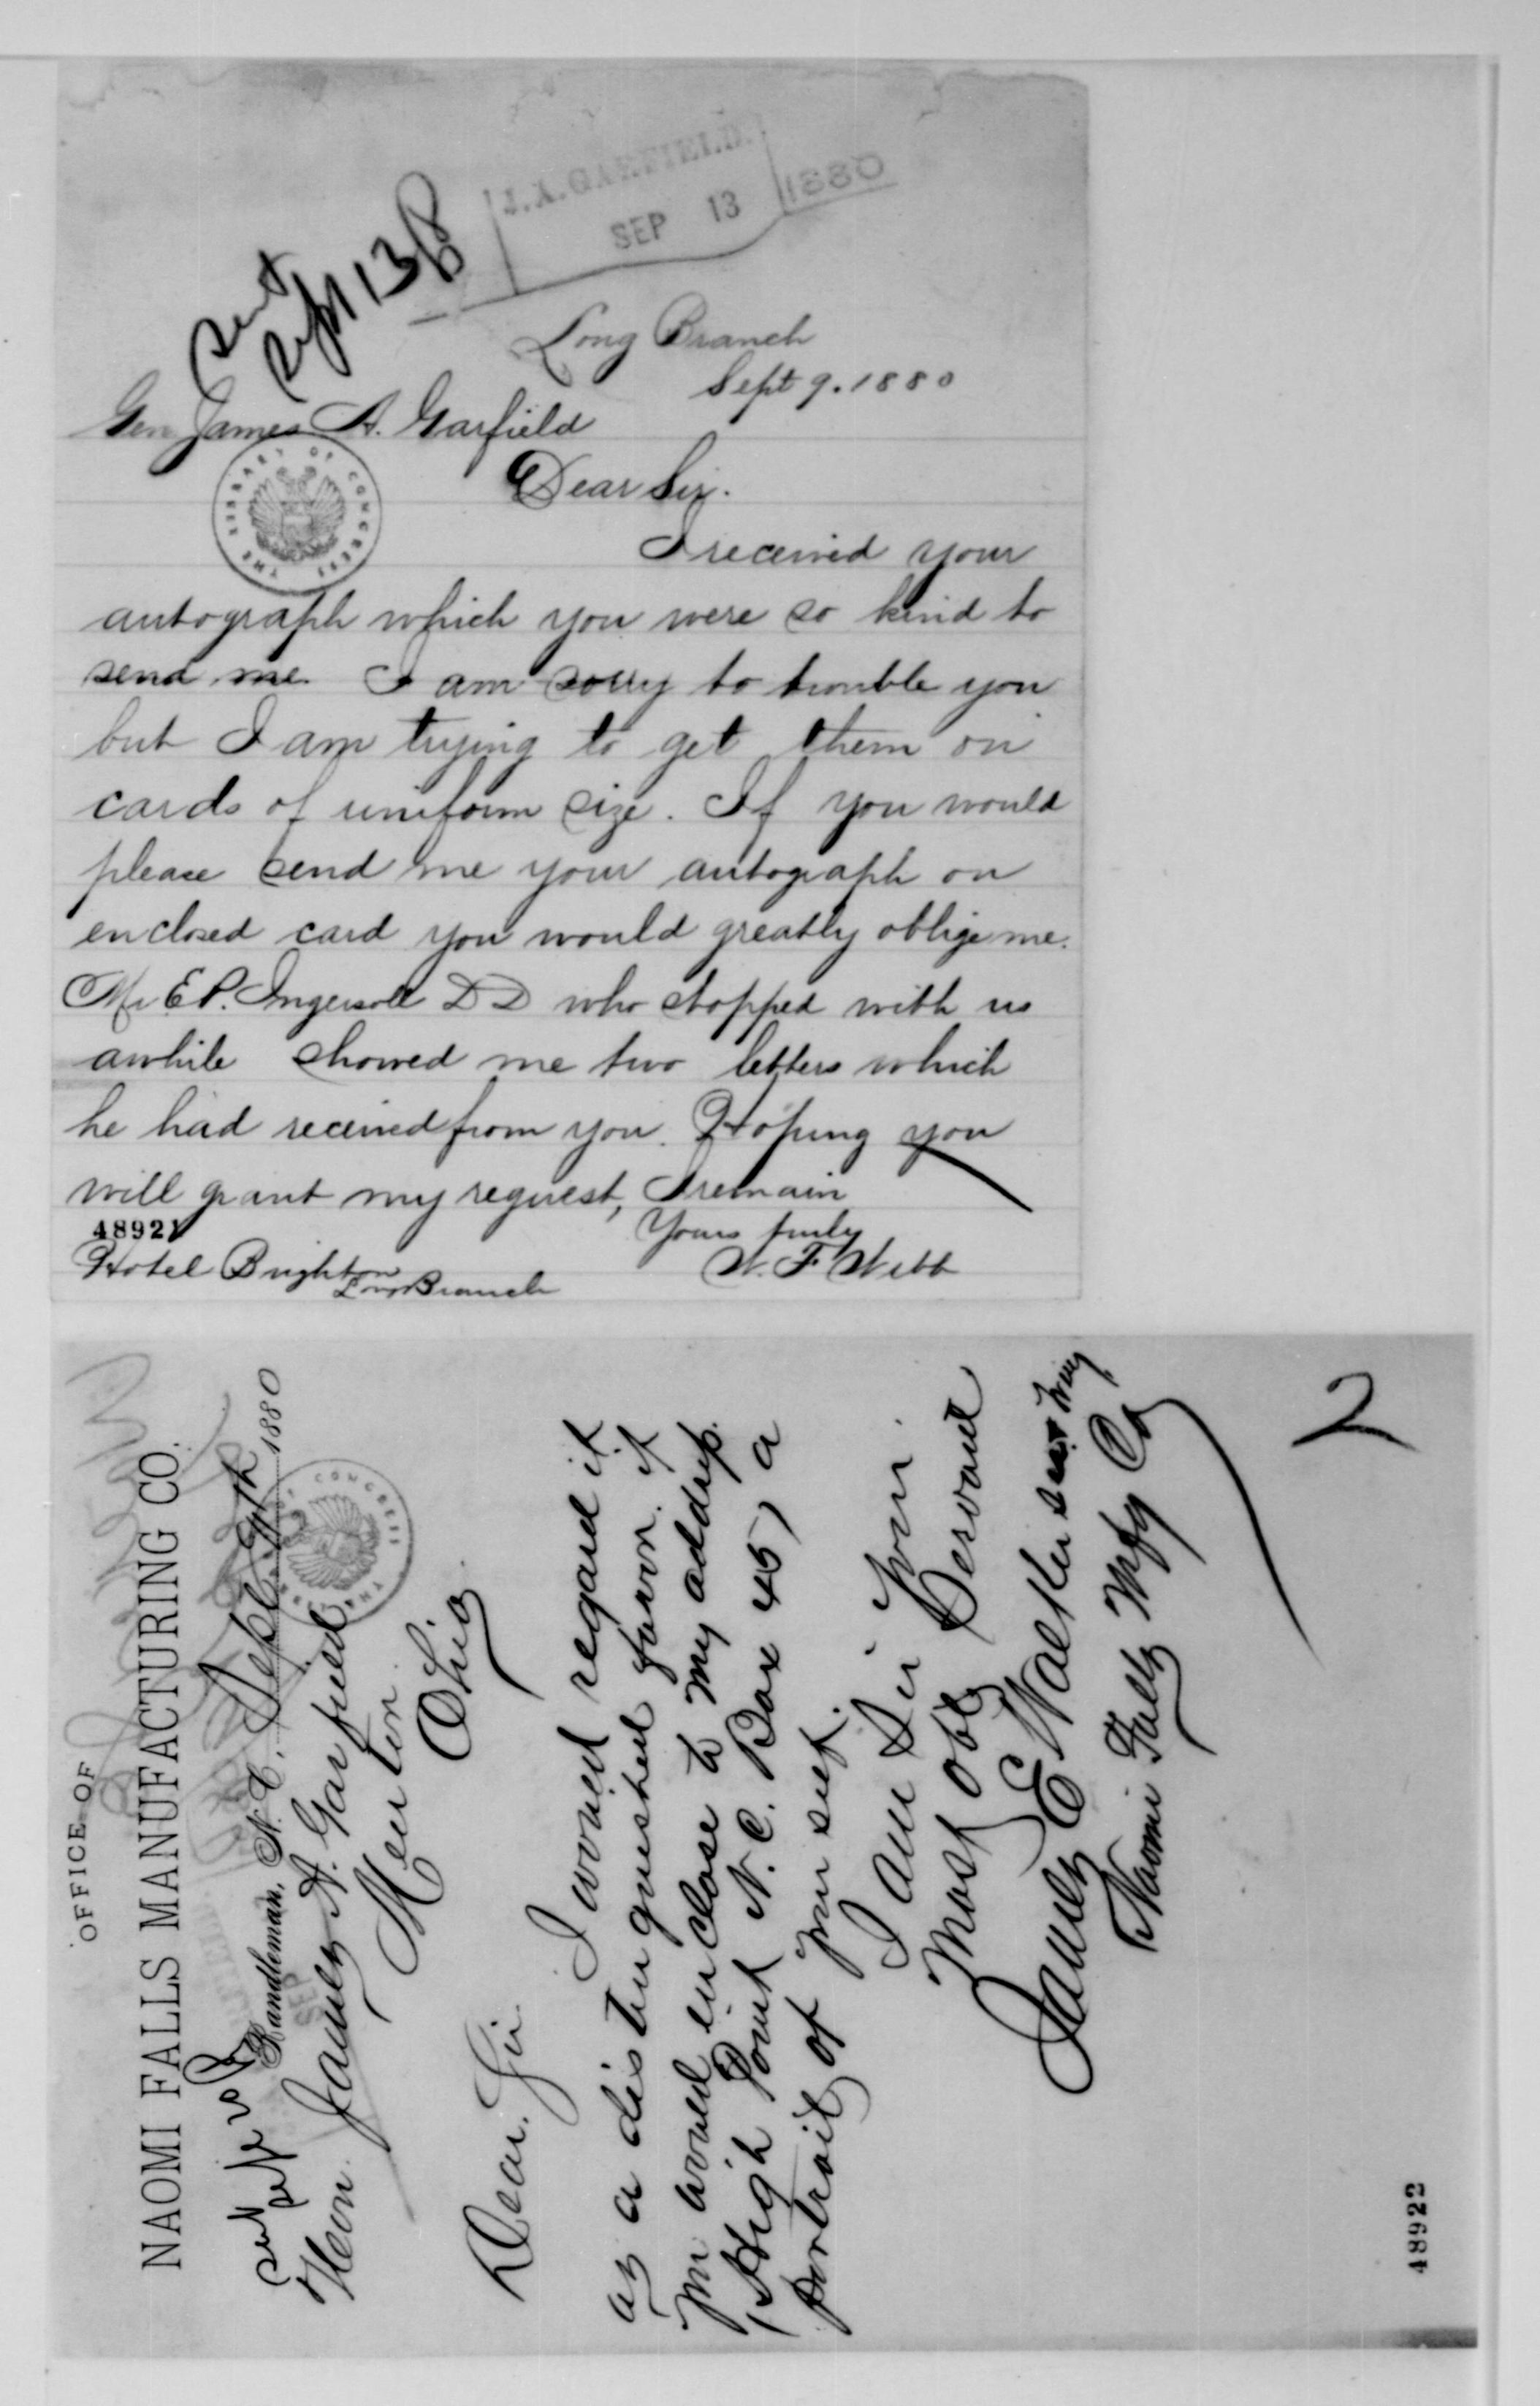 J. A. GARFIELD.
SEP 13 1880
sent
Sept 13
Long Branch
Sept 9. 1880
Gen James A. Garfield
Dear Sir.
I received your
autograph which you were so kind to
send me. I am sorry to trouble you
but I am trying to get them on
cards of uniform size. If you would
please send me your autograph on
enclosed card you would greatly oblige me.
Mr E P. Ingersoll D D who stopped with us
awhile showed me two letters which
he had received from you. Hoping you
will grant my request, I remain
Yours truly
W. F. Webb
48921
Hotel Brighton
Long Branch
THE LIBRARY OF CONGRESS
OFFICE OF
NAOMI FALLS MANUFACTURING CO.
Randleman, N. C., Sept 9th 1880
sent
Sept 20
Hon. James A. Garfield
Mentor.
Ohio
Dear. Sir
I would regard it
as a distinguished favor. if
you would enclose to my address.
(High Point N. C. Box 45) a
portrait of your self.
I am Sir Your
Most obt Servant
James E Walker
Naomi Falls Mfg Co
2
48922